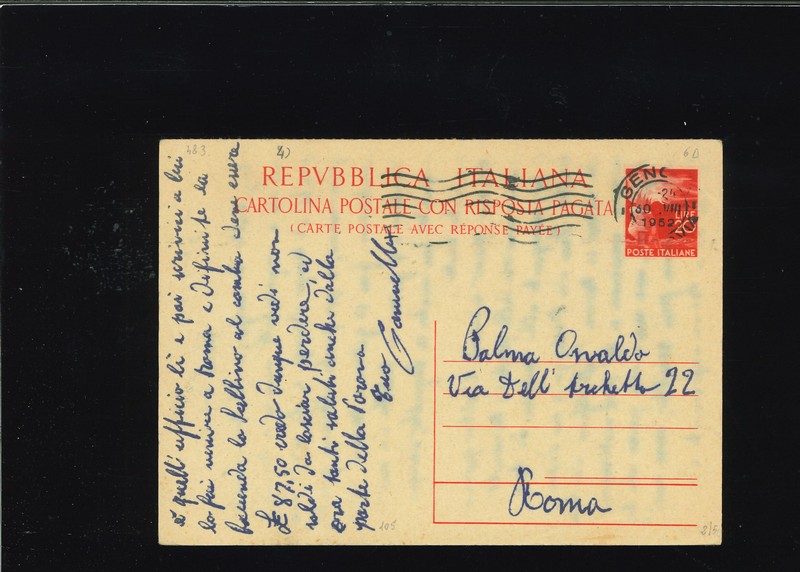 483
4)
6 D
REPVBBLICA ITALIANA
CARTOLINA POSTALE CON RISPOSTA PAGATA
(CARTE POSTALE AVEC RÉPONSE PAYÉE)
GENO
30 VIII
1952
LIRE
20
POSTE ITALIANE
Balma Osvaldo
Via Dell' Archetto 22
Roma
e quell' ufficio lì e poi scrivivi a lui
lo fai venire a Roma e definite la
faccenda lo Bellino al cambio deve essere
£ 87,50 credo dunque vedi non
soldi da lasciar perdere, ed
ora tanti saluti anche dalla
parte della
Tuo
105